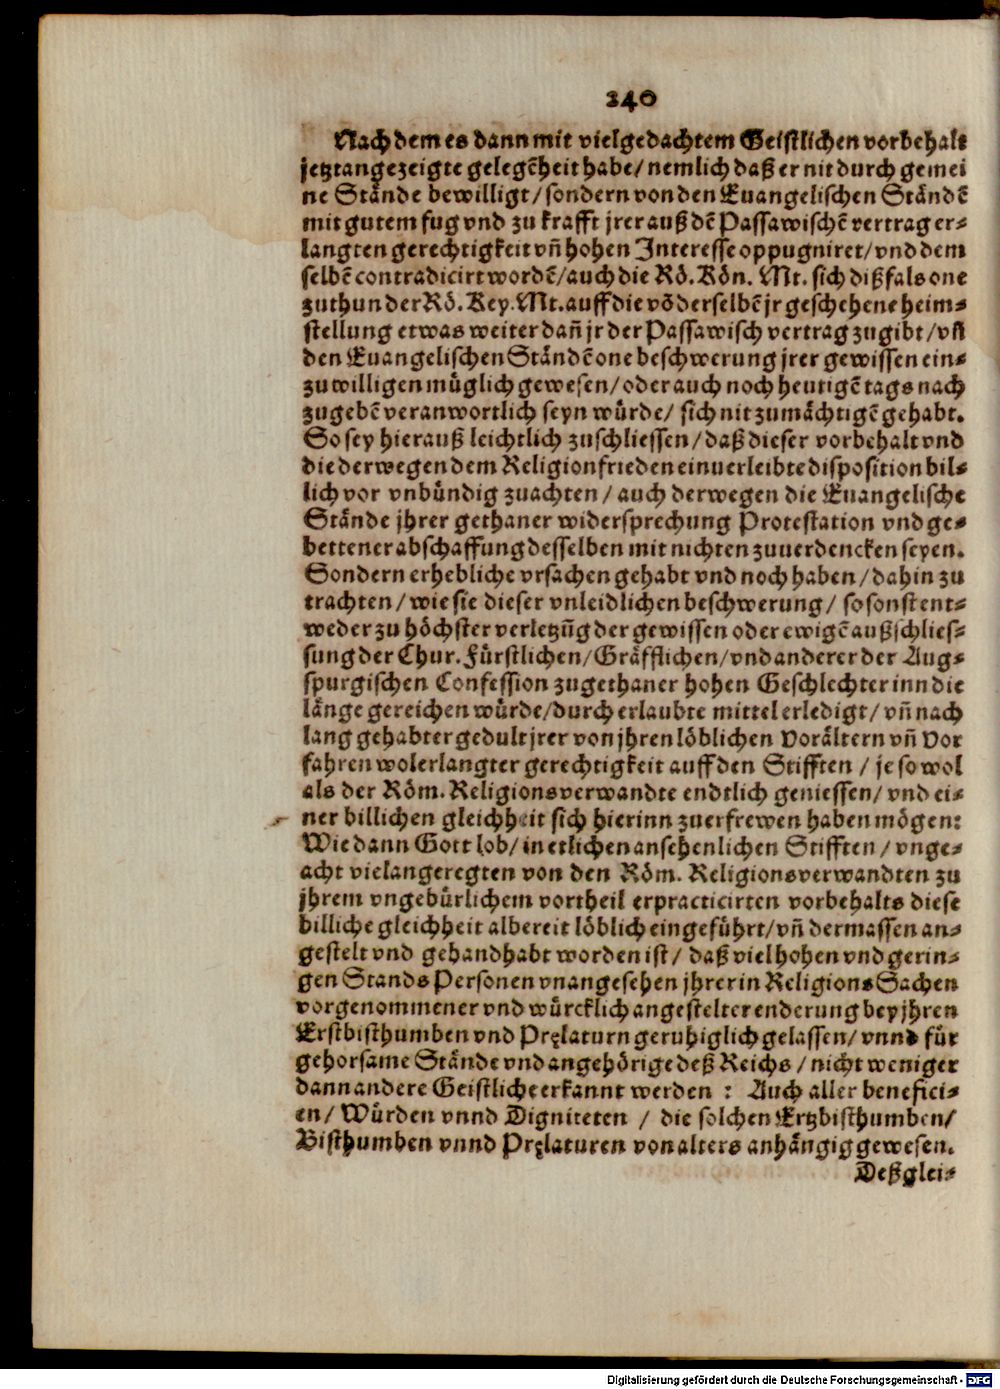 240
Nach dem es dann mit vielgedachtem Geistlichen vorbehalt
jetztangezeigte gelegēheit habe/ nemlich daß er nit durch gemei
ne Stände bewilligt/ sondern von den Euangelischen Ständē
mit gutem fug vnd zu krafft jrer auß dē Passawischē vertrag er-
langten gerechtigkeit vñ hohen Interesse oppugniret/ vnd dem
selbē contradicirt wordē/ auch die Rö. Kön. Mt. sich dißfals one
zuthun der Rö. Key. Mt. auff die vō derselbē jr geschehene heim-
stellung etwas weiter dañ jr der Passawisch vertrag zugibt/ vñ
den Euangelischen Ständē one beschwerung jrer gewissen ein-
zuwilligen müglich gewesen/ oder auch noch heutigē tags nach
zugebē veranwortlich seyn würde/ sich nit zumächtigē gehabt.
So sey hierauß leichtlich zuschliessen/ daß dieser vorbehalt vnd
die derwegen dem Religionfrieden einuerleibte disposition bil-
lich vor vnbündig zuachten/ auch derwegen die Euangelische
Stände jhrer gethaner widersprechung Protestation vnd ge-
bettener abschaffung desselben mit nichten zuuerdencken seyen.
Sondern erhebliche vrsachen gehabt vnd noch haben/ dahin zu
trachten/ wie sie dieser vnleidlichen beschwerung/ so sonst ent-
weder zu höchster verletzūg der gewissen oder ewigē außschlies-
sung der Chur. Fürstlichen/ Gräfflichen/ vnd anderer der Aug-
spurgischen Confession zugethaner hohen Geschlechter inn die
länge gereichen würde/ durch erlaubte mittel erledigt/ vñ nach
lang gehabter gedult jrer von jhren löblichen Vorältern vñ Vor
fahren wolerlangter gerechtigkeit auff den Stifften/ je so wol
als der Röm. Religionsverwandte endtlich geniessen/ vnd ei-
ner billichen gleichheit sich hierinn zuerfrewen haben mögen:
Wie dann Gott lob/ in etlichen ansehenlichen Stifften/ vnge-
acht vielangeregten von den Röm. Religionsverwandten zu
jhrem vngebürlichem vortheil erpracticirten vorbehalts diese
billiche gleichheit albereit löblich eingeführt/ vñ dermassen an-
gestelt vnd gehandhabt worden ist/ daß viel hohen vnd gerin-
gen Stands Personen vnangesehen jhrer in Religions Sachen
vorgenommener vnd würcklich angestelter enderung bey jhren
Erstbisthumben vnd Pręlaturn geruhiglich gelassen/ vnnd für
gehorsame Stände vnd angehörige deß Reichs/ nicht weniger
dann andere Geistliche erkannt werden : Auch aller benefici-
en/ Würden vnnd Digniteten / die solchen Ertzbisthumben/
Bisthumben vnnd Pręlaturen von alters anhängig gewesen.
Deßglei-
Digitalisierung gefördert durch die Deutsche Forschungsgemeinschaft - DFG